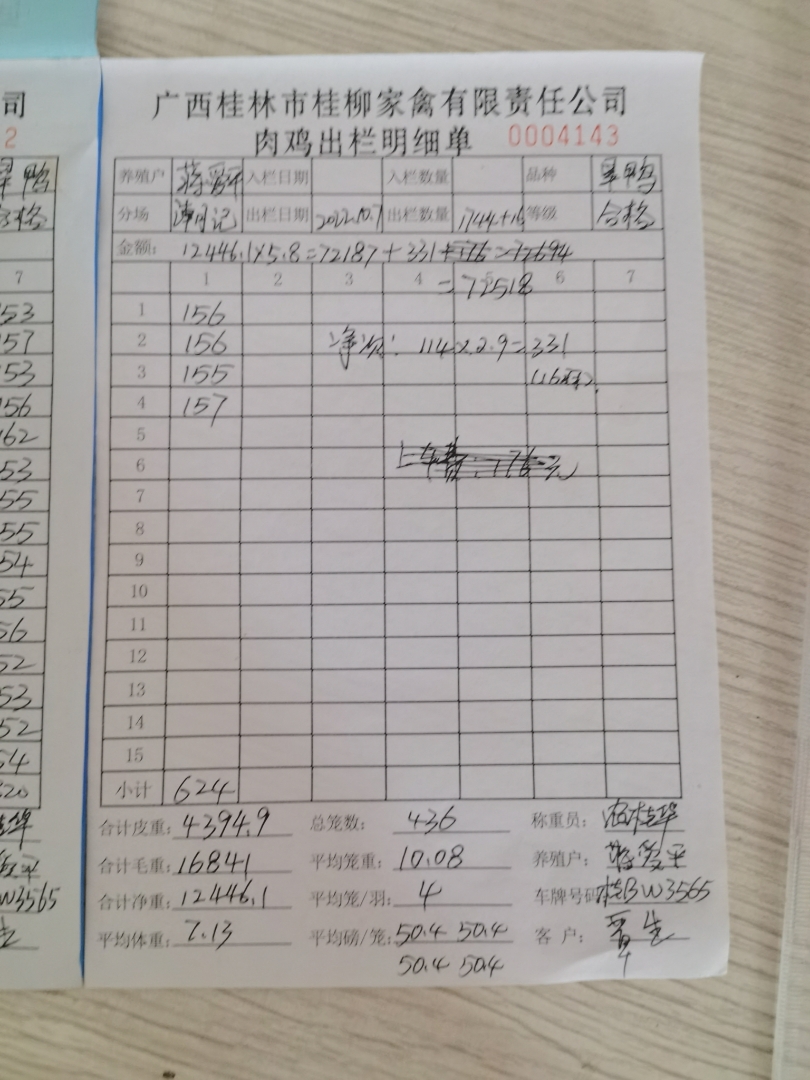 司
2
7
53
57
53
156
162
53
55
55
54
55
56
52
53
52
54
W3565
广西桂林市桂柳家禽有限责任公司
肉鸡出栏明细单 0004143
养殖户 入栏日期 入栏数量 品种
分场 出栏日期 2022.10.7 出栏数量 1744+16 等级 合格
金额: 12446.1×5.8=72187+331
=72518
1 2 3 4 5 6 7
1 156
2 156 114×2.9=331
3 155
4 157
5
6 上车费:176元
7
8
9
10
11
12
13
14
15
小计 624
合计皮重: 4394.9 总笼数: 436 称重员:
合计毛重: 16841 平均笼重: 10.08 养殖户:
合计净重: 12446.1 平均笼/羽: 4 车牌号码 桂BW3565
平均体重: 7.13 平均磅/笼: 50.4 50.4 客户: 覃生
50.4 50.4